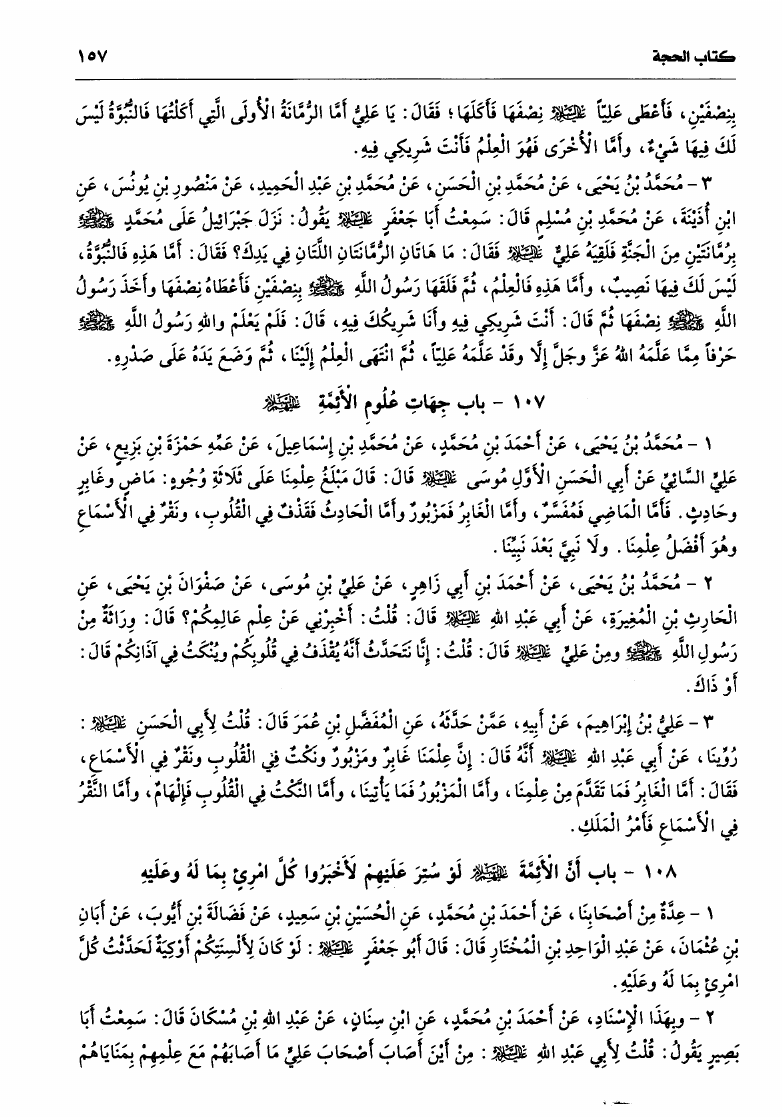 كتاب الحجة ١٥٧
بِنِصْفَيْنِ، فَأَعْطَى عَلِيّاً عَلَيْهِ السَّلَامُ نِصْفَهَا فَأَكَلَهَا؛ فَقَالَ: يَا عَلِيُّ أَمَّا الرُّمَّانَةُ الْأُولَى الَّتِي أَكَلْتُهَا فَالنُّبُوَّةُ لَيْسَ
لَكَ فِيهَا شَيْءٌ، وأَمَّا الْأُخْرَى فَهُوَ الْعِلْمُ فَأَنْتَ شَرِيكِي فِيهِ.
٣ - مُحَمَّدُ بْنُ يَحْيَى، عَنْ مُحَمَّدِ بْنِ الْحَسَنِ، عَنْ مُحَمَّدِ بْنِ عَبْدِ الْحَمِيدِ، عَنْ مَنْصُورِ بْنِ يُونُسَ، عَنِ
ابْنِ أُذَيْنَةَ، عَنْ مُحَمَّدِ بْنِ مُسْلِمٍ قَالَ: سَمِعْتُ أَبَا جَعْفَرٍ عَلَيْهِ السَّلَامُ يَقُولُ: نَزَلَ جَبْرَائِيلُ عَلَى مُحَمَّدٍ ﷺ
بِرُمَّانَتَيْنِ مِنَ الْجَنَّةِ فَلَقِيَهُ عَلِيٌّ عَلَيْهِ السَّلَامُ فَقَالَ: مَا هَاتَانِ الرُّمَّانَتَانِ اللَّتَانِ فِي يَدِكَ؟ فَقَالَ: أَمَّا هَذِهِ فَالنُّبُوَّةُ،
لَيْسَ لَكَ فِيهَا نَصِيبٌ، وأَمَّا هَذِهِ فَالْعِلْمُ، ثُمَّ فَلَقَهَا رَسُولُ اللَّهِ ﷺ بِنِصْفَيْنِ فَأَعْطَاهُ نِصْفَهَا وأَخَذَ رَسُولُ
اللَّهِ ﷺ نِصْفَهَا ثُمَّ قَالَ: أَنْتَ شَرِيكِي فِيهِ وأَنَا شَرِيكُكَ فِيهِ، قَالَ: فَلَمْ يَعْلَمْ واللهِ رَسُولُ اللَّهِ ﷺ
حَرْفاً مِمَّا عَلَّمَهُ اللهُ عَزَّ وجَلَّ إِلَّا وقَدْ عَلَّمَهُ عَلِيّاً، ثُمَّ انْتَهَى الْعِلْمُ إِلَيْنَا، ثُمَّ وَضَعَ يَدَهُ عَلَى صَدْرِهِ.
١٠٧ - باب جِهَاتِ عُلُومِ الْأَئِمَّةِ عَلَيْهِمُ السَّلَامُ
١ - مُحَمَّدُ بْنُ يَحْيَى، عَنْ أَحْمَدَ بْنِ مُحَمَّدٍ، عَنْ مُحَمَّدِ بْنِ إِسْمَاعِيلَ، عَنْ عَمِّهِ حَمْزَةَ بْنِ بَزِيعٍ، عَنْ
عَلِيٍّ السَّائِيِّ عَنْ أَبِي الْحَسَنِ الْأَوَّلِ مُوسَى عَلَيْهِ السَّلَامُ قَالَ: قَالَ مَبْلَغُ عِلْمِنَا عَلَى ثَلَاثَةِ وُجُوهٍ: مَاضٍ وغَابِرٍ
وحَادِثٍ. فَأَمَّا الْمَاضِي فَمُفَسَّرٌ، وأَمَّا الْغَابِرُ فَمَزْبُورٌ وأَمَّا الْحَادِثُ فَقَذْفٌ فِي الْقُلُوبِ، ونَقْرٌ فِي الْأَسْمَاعِ
وهُوَ أَفْضَلُ عِلْمِنَا. ولَا نَبِيَّ بَعْدَ نَبِيِّنَا.
٢ - مُحَمَّدُ بْنُ يَحْيَى، عَنْ أَحْمَدَ بْنِ أَبِي زَاهِرٍ، عَنْ عَلِيِّ بْنِ مُوسَى، عَنْ صَفْوَانَ بْنِ يَحْيَى، عَنِ
الْحَارِثِ بْنِ الْمُغِيرَةِ، عَنْ أَبِي عَبْدِ اللهِ عَلَيْهِ السَّلَامُ قَالَ: قُلْتُ: أَخْبِرْنِي عَنْ عِلْمِ عَالِمِكُمْ؟ قَالَ: وِرَاثَةٌ مِنْ
رَسُولِ اللَّهِ ﷺ ومِنْ عَلِيٍّ عَلَيْهِ السَّلَامُ قَالَ: قُلْتُ: إِنَّا نَتَحَدَّثُ أَنَّهُ يُقْذَفُ فِي قُلُوبِكُمْ ويُنْكَتُ فِي آذَانِكُمْ قَالَ:
أَوْ ذَاكَ.
٣ - عَلِيُّ بْنُ إِبْرَاهِيمَ، عَنْ أَبِيهِ، عَمَّنْ حَدَّثَهُ، عَنِ الْمُفَضَّلِ بْنِ عُمَرَ قَالَ: قُلْتُ لِأَبِي الْحَسَنِ عَلَيْهِ السَّلَامُ:
رُوِّينَا، عَنْ أَبِي عَبْدِ اللهِ عَلَيْهِ السَّلَامُ أَنَّهُ قَالَ: إِنَّ عِلْمَنَا غَابِرٌ ومَزْبُورٌ ونَكْتٌ فِي الْقُلُوبِ ونَقْرٌ فِي الْأَسْمَاعِ،
فَقَالَ: أَمَّا الْغَابِرُ فَمَا تَقَدَّمَ مِنْ عِلْمِنَا، وأَمَّا الْمَزْبُورُ فَمَا يَأْتِينَا، وأَمَّا النَّكْتُ فِي الْقُلُوبِ فَإِلْهَامٌ، وأَمَّا النَّقْرُ
فِي الْأَسْمَاعِ فَأَمْرُ الْمَلَكِ.
١٠٨ - باب أَنَّ الْأَئِمَّةَ عَلَيْهِمُ السَّلَامُ لَوْ سُتِرَ عَلَيْهِمْ لَأَخْبَرُوا كُلَّ امْرِئٍ بِمَا لَهُ وعَلَيْهِ
١ - عِدَّةٌ مِنْ أَصْحَابِنَا، عَنْ أَحْمَدَ بْنِ مُحَمَّدٍ، عَنِ الْحُسَيْنِ بْنِ سَعِيدٍ، عَنْ فَضَالَةَ بْنِ أَيُّوبَ، عَنْ أَبَانِ
بْنِ عُثْمَانَ، عَنْ عَبْدِ الْوَاحِدِ بْنِ الْمُخْتَارِ قَالَ: قَالَ أَبُو جَعْفَرٍ عَلَيْهِ السَّلَامُ: لَوْ كَانَ لِأَلْسِنَتِكُمْ أَوْكِيَةٌ لَحَدَّثْتُ كُلَّ
امْرِئٍ بِمَا لَهُ وعَلَيْهِ.
٢ - وبِهَذَا الْإِسْنَادِ، عَنْ أَحْمَدَ بْنِ مُحَمَّدٍ، عَنِ ابْنِ سِنَانٍ، عَنْ عَبْدِ اللهِ بْنِ مُسْكَانَ قَالَ: سَمِعْتُ أَبَا
بَصِيرٍ يَقُولُ: قُلْتُ لِأَبِي عَبْدِ اللهِ عَلَيْهِ السَّلَامُ: مِنْ أَيْنَ أَصَابَ أَصْحَابَ عَلِيٍّ مَا أَصَابَهُمْ مَعَ عِلْمِهِمْ بِمَنَايَاهُمْ